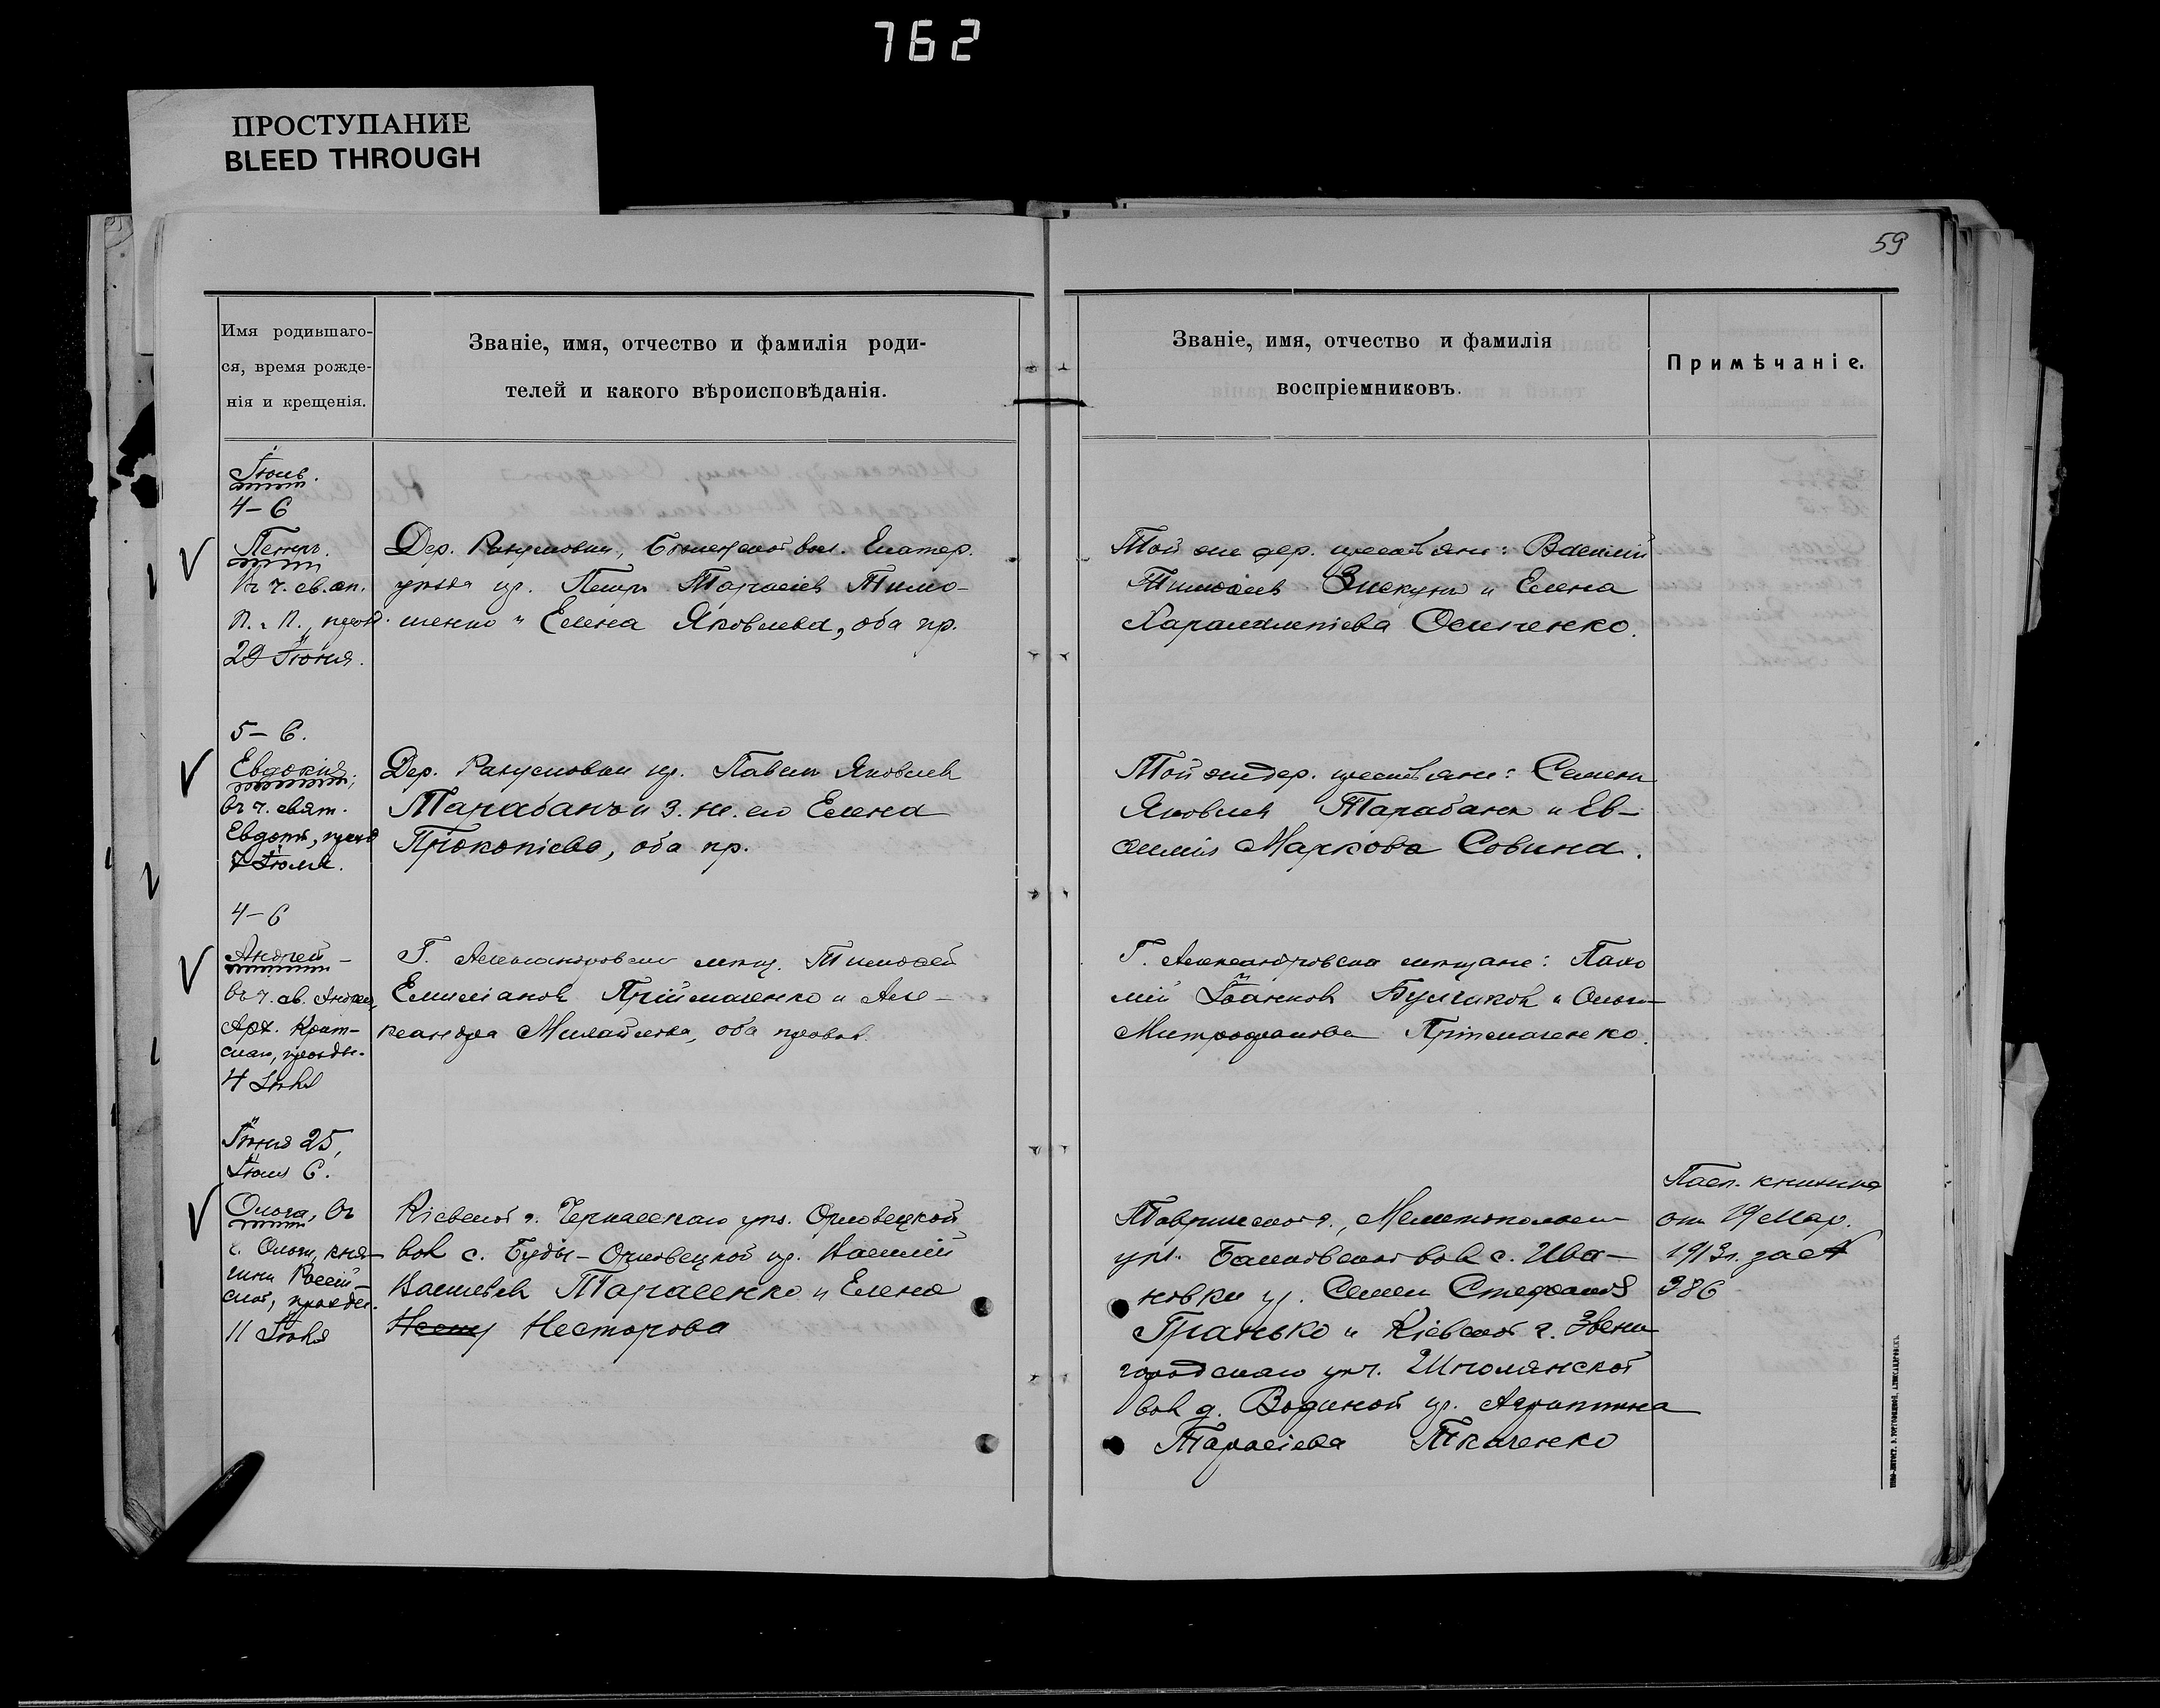 762
ПРОСТУПАНИЕ
BLEED THROUGH
59
Имя родившаго-
ся, время рожде-
нія и крещенія.
Званіе, имя, отчество и фамилія роди-
телей и какого вѣроисповѣданія.
Званіе, имя, отчество и фамилія
воспріемниковъ.
Примѣчаніе.
Іюль.
4–6
Петръ.
въ ч. св. ап.
П. и П., празд.
29 Іюня.
Дер. вол. Екатер.
уѣзда кр. Петръ Тарасіев Тимо-
шенко и Елена Яковлева, оба пр.
Той же дер. крестьяне: Василій
Тимоѳеев и Елена
Харалампіева Осипенко.
5–6.
Евдокія,
въ ч. свят.
Евдок., празд
7 Іюля.
Дер. кр. Павел Яковлев
Тарабанъ и з. ж. его Елена
Прокопіева, оба пр.
Той же дер. крестьяне: Семен
Яковлев Тарабанъ и Ев-
Маркова Совина.
4–6
Андрей –
въ ч. св. Андрея,
Арх. Крит-
скаго, празд.
4 Іюля
Г. Александровска мѣщ. Тимоѳей
Емиліанов Пріймаченко и Але-
ксандра Михайлова, оба правос.
Г. Александровска мѣщане: Пахо
мій Іоанков и Ольга
Митрофанова Пріймаченко.
Іюня 25,
Іюля 6.
Ольга, въ
ч. Ольги, кня-
гини Россій-
ской, празд.
11 Іюля
Кіевской г. Черкасскаго уѣз. Орловецкой
вол с. Буды-Орловецкой кр. Василій
Васильев Тарасенко и Елена
Несторова
Таврической г., Мелитопольск
уѣз. вол с. Ива-
новки кр. Семен Стефанов
Гранько и Кіевской г. Звени
городскаго уѣз. Шполянской
вол д. Водяной кр. Агриппина
Тарасіева Ткаченко
Пасп. книжка
отъ 19 Мар.
1913 г. за №
386